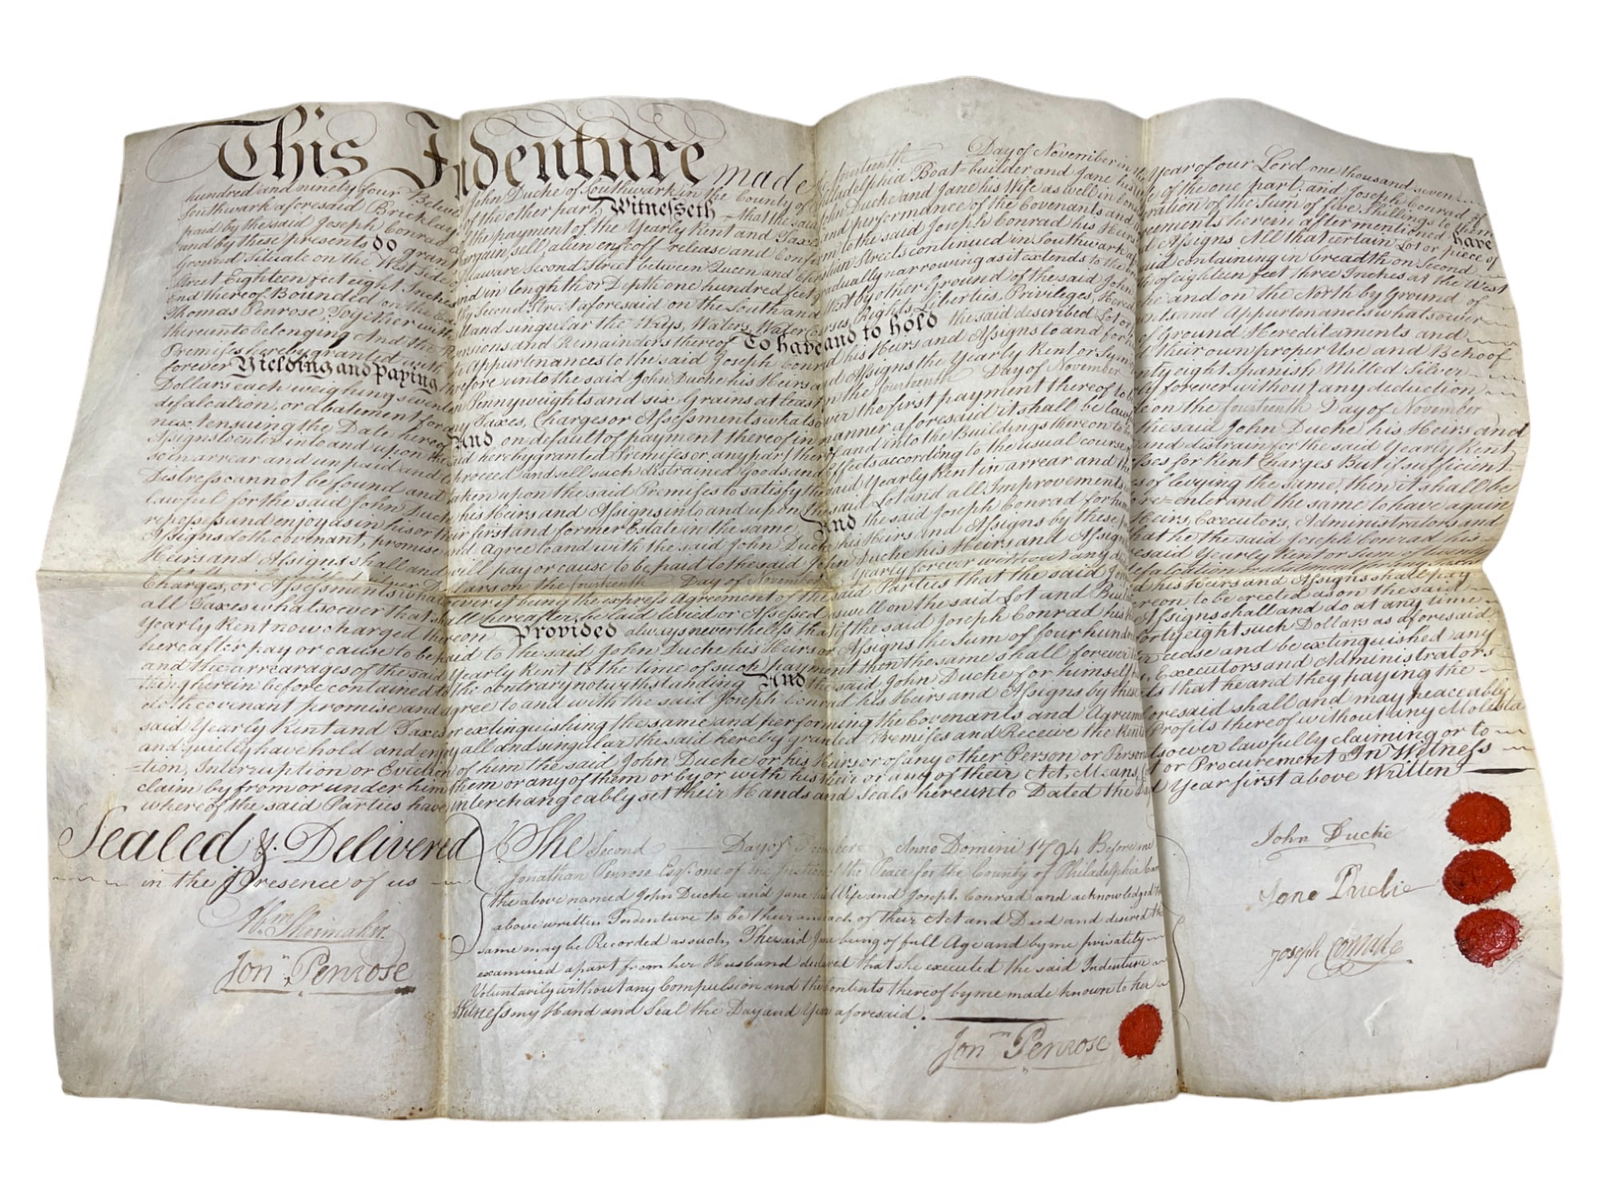 This Indenture made the fourteenth Day of November in the Year of our Lord one thousand seven
hundred and ninety four Between John Duche of Southwark in the County of Philadelphia Boat-builder and Jane his Wife of the one part, and Joseph Conrad of
Southwark aforesaid Bricklayer of the other part, Witnesseth that the said John Duche and Jane his Wife as well in Consideration of the Sum of five Shillings to them
paid by the said Joseph Conrad as of the payment of the Yearly Rent and Taxes and performance of the Covenants and Agreements herein after mentioned have
and by these presents do grant bargain, sell, alien enfeoff release and Confirm to the said Joseph Conrad his Heirs and Assigns All that certain Lot or piece of
Ground Situate on the West side of Delaware Second Street between Queen and Streets continued in Southwark aforesaid containing in breadth on Second
Street Eighteen feet eight Inches and in length or Depth one hundred feet gradually narrowing as it extends to the breadth of eighteen feet three Inches at the West
end thereof Bounded on the East by Second Street aforesaid on the South and West by other Ground of the said John Duche and on the North by Ground of
Thomas Penrose; Together with all and singular the Ways, Waters, Water Courses, Rights, Liberties, Privileges, Hereditaments and Appurtenances whatsoever
thereunto belonging And the Reversions and Remainders thereof To have and to hold the said described Lot or piece of Ground Hereditaments and
Premises hereby granted with the Appurtenances to the said Joseph Conrad his Heirs and Assigns to and for their own proper Use and Behoof
forever Yielding and paying therefore unto the said John Duche his Heirs and Assigns the Yearly Rent or Sum of twenty eight Spanish Milled Silver
Dollars each weighing seventeen Pennyweights and six Grains at least on the fourteenth Day of November Yearly forever without any deduction,
defalcation, or abatement for any Taxes, Charges or Assessments whatsoever the first payment thereof to be made on the fourteenth Day of November
next ensuing the Date hereof And on default of payment thereof in manner aforesaid it shall be lawful for the said John Duche his Heirs and
Assigns to enter into and upon the said hereby granted Premises or any part thereof and into the Buildings thereon to be and distrain for the said Yearly Rent
so in arrear and unpaid and to proceed and sell such distrained Goods and Effects according to the usual course of Distresses for Rent Charges But if sufficient
Distress cannot be found and taken upon the said Premises to satisfy the said Yearly Rent in arrear and the Charges of levying the same, then it shall be
lawful for the said John Duche his Heirs and Assigns into and upon the said Lot and all Improvements to re-enter and the same to have again
repossess and enjoy as in his or their first and former Estate in the same, And the said Joseph Conrad for himself his Heirs, Executors, Administrators and
Assigns doth covenant, promise and Agree to and with the said John Duche his Heirs and Assigns by these presents that he the said Joseph Conrad his
Heirs and Assigns shall and will pay or cause to be paid to the said John Duche his Heirs and Assigns the aforesaid Yearly Rent or Sum of twenty
on the fourteenth Day of November Yearly forever without any defalcation
Charges, or Assessments whatsoever it being the express Agreement of the said Parties that the said Joseph Conrad his Heirs and Assigns shall pay
all Taxes whatsoever that shall hereafter be laid levied or Assessed as well on the said Lot and Buildings thereon, to be erected as on the said
Yearly Rent now charged thereon Provided always nevertheless that if the said Joseph Conrad his Heirs or Assigns shall and do at any time
hereafter pay or cause to be paid to the said John Duche his Heirs or Assigns the Sum of four hundred and forty eight such Dollars as aforesaid
and the arrearages of the said Yearly Rent to the time of such payment then the same shall forever thereafter cease and be extinguished any
thing herein before contained to the contrary notwithstanding And the said John Duche for himself his Heirs Executors and Administrators
doth covenant promise and agree to and with the said Joseph Conrad his Heirs and Assigns by these presents that he and they paying the
said Yearly Rent and Taxes or extinguishing the same and performing the Covenants and Agreements aforesaid shall and may peaceably
and quietly have hold and enjoy all and singular the said hereby granted Premises and Receive the Rents and Profits thereof without any Molesta-
-tion, Interruption or Eviction of him the said John Duche or his Heirs or of any other Person or Persons whatsoever lawfully claiming or to
claim by from or under him them or any of them or by or with his their or any of their Act, Means, or Procurement In Witness
whereof the said Parties have interchangeably set their Hands and Seals hereunto Dated the Day and Year first above Written
Sealed & Delivered
in the Presence of us
Wm Shoemaker
Jonn. Penrose
The Second Day of Anno Domini 1794 Before me
Jonathan Penrose Esqr. one of the Justices of the Peace for the County of Philadelphia came
the above named John Duche and Jane his Wife and Joseph Conrad and acknowledged the
above written Indenture to be their and each of their Act and Deed and desired the
same may be Recorded as such, The said Jane being of full Age and by me privately
examined apart from her Husband declared that she executed the said Indenture
Voluntarily without any Compulsion and the contents thereof by me made known to her
Witness my Hand and Seal the Day and Year aforesaid.
Jonn. Penrose
John Duche
Jane Duche
Joseph Conrade